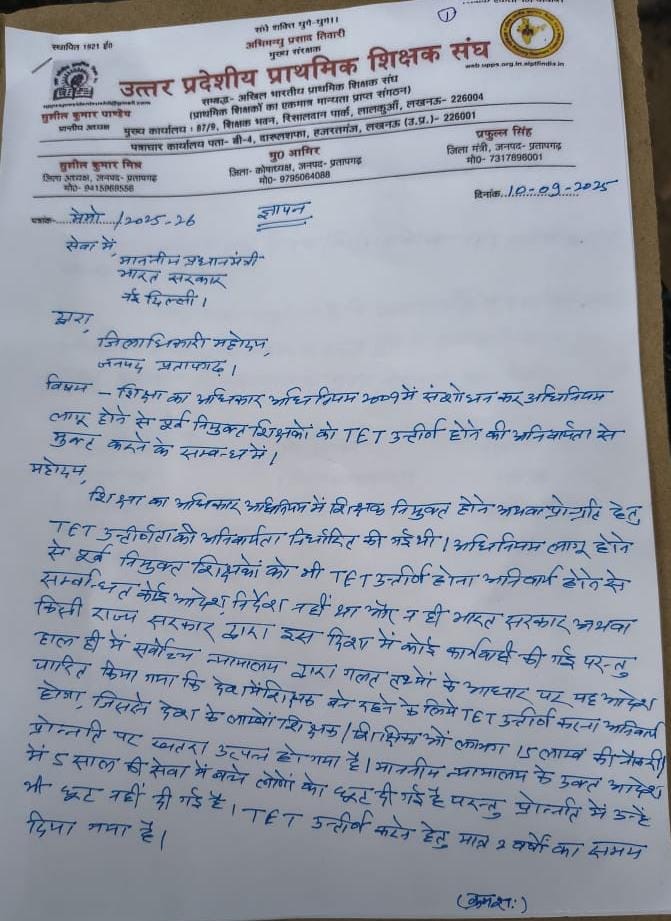 संघे शक्ति युगे-युगे।।
अभिमन्यु प्रसाद तिवारी
मुख्य संरक्षक
स्थापित 1921 ई०
उत्तर प्रदेशीय प्राथमिक शिक्षक संघ
web.upps.org.in.aiptfindia.in
सम्बद्ध- अखिल भारतीय प्राथमिक शिक्षक संघ
(प्राथमिक शिक्षकों का एकमात्र मान्यता प्राप्त संगठन)
सुशील कुमार पाण्डेय
प्रान्तीय अध्यक्ष
मुख्य कार्यालय : 87/9, शिक्षक भवन, रिसालदार पार्क, लालकुआँ, लखनऊ- 226004
पत्राचार कार्यालय पता- बी-4, दारूलशफा, हजरतगंज, लखनऊ (उ.प्र.)- 226001
सुशील कुमार मिश्र
जिला अध्यक्ष, जनपद- प्रतापगढ़
मो०- 9415968556
मु० आमिर
जिला- कोषाध्यक्ष, जनपद- प्रतापगढ़
मो०- 9795064088
प्रफुल्ल सिंह
जिला मंत्री, जनपद- प्रतापगढ़
मो०- 7317898001
पत्रांक- मेमो /2025-26
ज्ञापन
दिनांक. 10-09-2025
सेवा में,
माननीय प्रधानमंत्री
भारत सरकार
नई दिल्ली।
द्वारा,
जिलाधिकारी महोदय,
जनपद प्रतापगढ़।
विषय - शिक्षा का अधिकार अधिनियम 2009 में संशोधन कर अधिनियम
लागू होने से पूर्व नियुक्त शिक्षकों को TET उत्तीर्ण होने की अनिवार्यता से
मुक्त करने के सम्बन्ध में।
महोदय,
शिक्षा का अधिकार अधिनियम में शिक्षक नियुक्त होने अथवा प्रोन्नति हेतु
TET उत्तीर्णता की अनिवार्यता निर्धारित की गई थी। अधिनियम लागू होने
से पूर्व नियुक्त शिक्षकों को भी TET उत्तीर्ण होना अनिवार्य होने से
सम्बन्धित कोई आदेश, निर्देश नहीं था और न ही भारत सरकार अथवा
किसी राज्य सरकार द्वारा इस दिशा में कोई कार्यवाही की गई परन्तु
हाल ही में सर्वोच्च न्यायालय द्वारा गलत तथ्यों के आधार पर यह आदेश
पारित किया गया कि देश में शिक्षक बने रहने के लिये TET उत्तीर्ण करना अनिवार्य
होगा, जिससे देश के लाखों शिक्षक/शिक्षिकाओं लगभग 15 लाख की नौकरी/
प्रोन्नति पर खतरा उत्पन्न हो गया है। माननीय न्यायालय के उक्त आदेश
में 5 साल की सेवा में बचे लोगों को छूट दी गई है परन्तु प्रोन्नति में उन्हें
भी छूट नहीं दी गई है। TET उत्तीर्ण करने हेतु मात्र 2 वर्षों का समय
दिया गया है।
(क्रमशः)